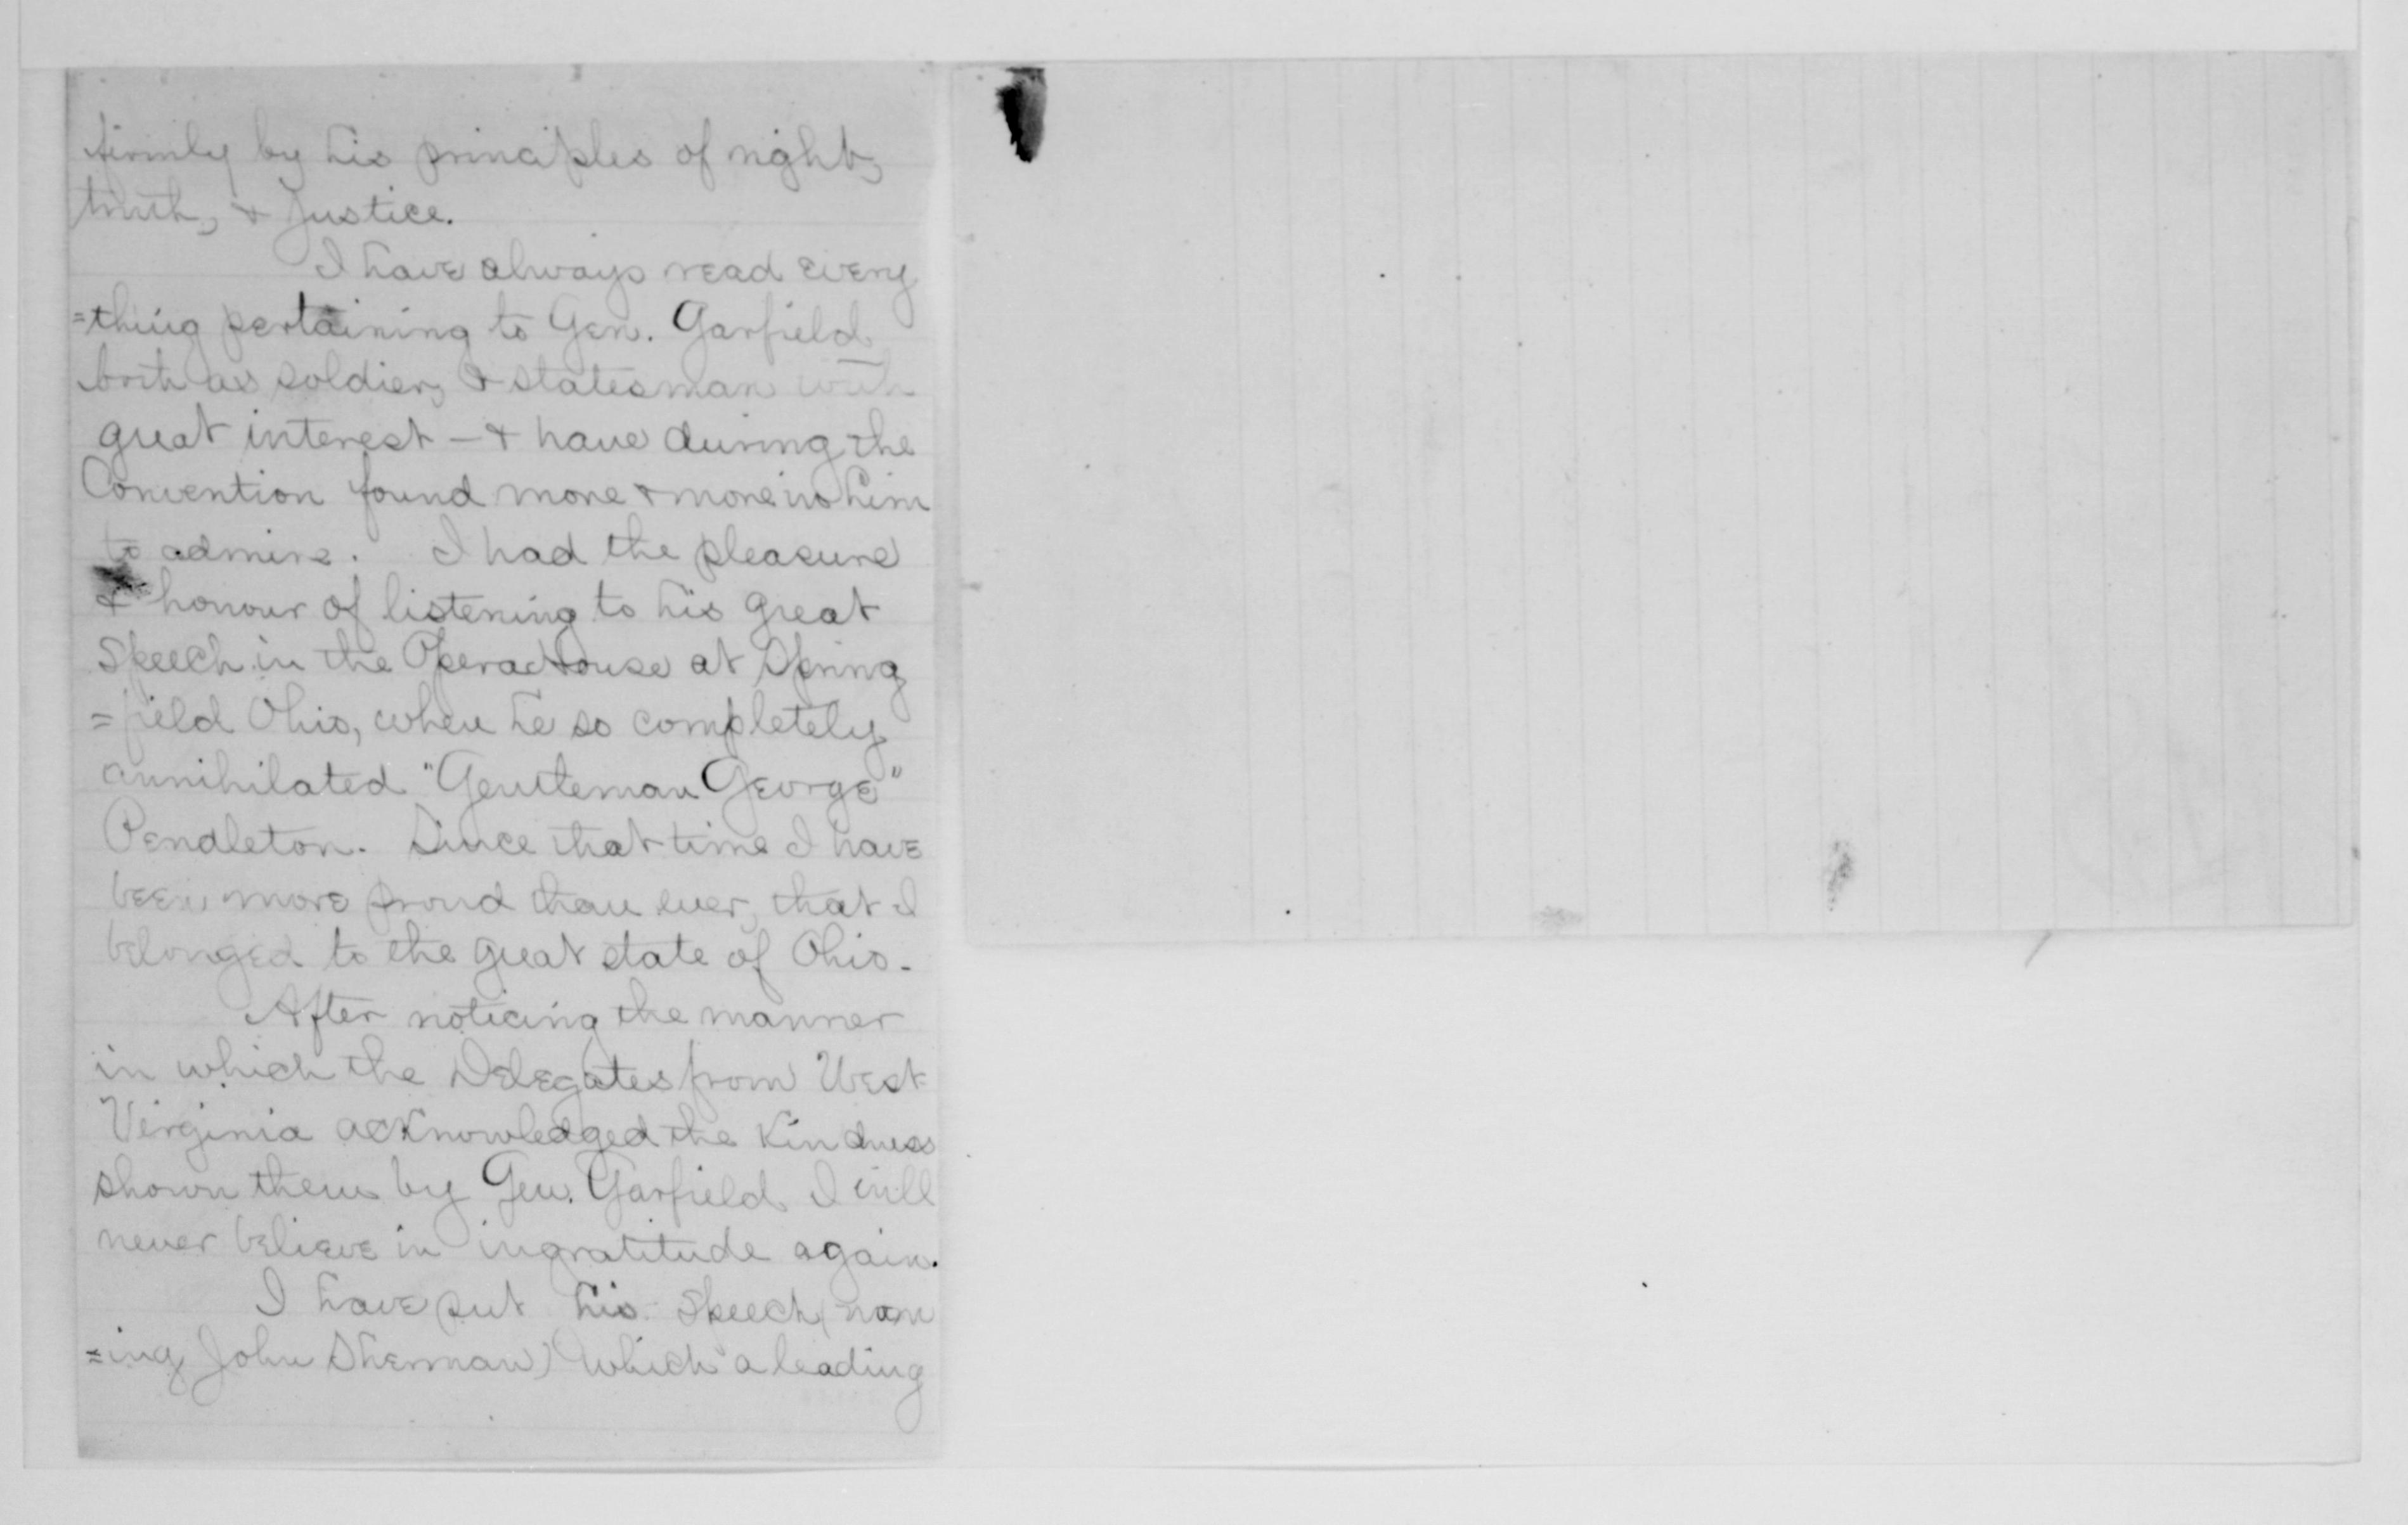 firmly by his principles of right,
truth, & Justice.
I have always read every
=thing pertaining to Gen. Garfield
both as soldier, & statesman with
great interest — & have during the
Convention found more & more in him
to admire. I had the pleasure
& honour of listening to his great
Speech in the Opera House at Spring
=field Ohio, when he so completely
annihilated "Gentleman George"
Pendleton. Since that time I have
been more proud than ever, that I
belonged to the great state of Ohio.
After noticing the manner
in which the Delegates from West
Virginia acknowledged the Kindness
shown them by Gen. Garfield I will
never believe in ingratitude again.
I have put his Speech (nam
=ing John Sherman) which a leading